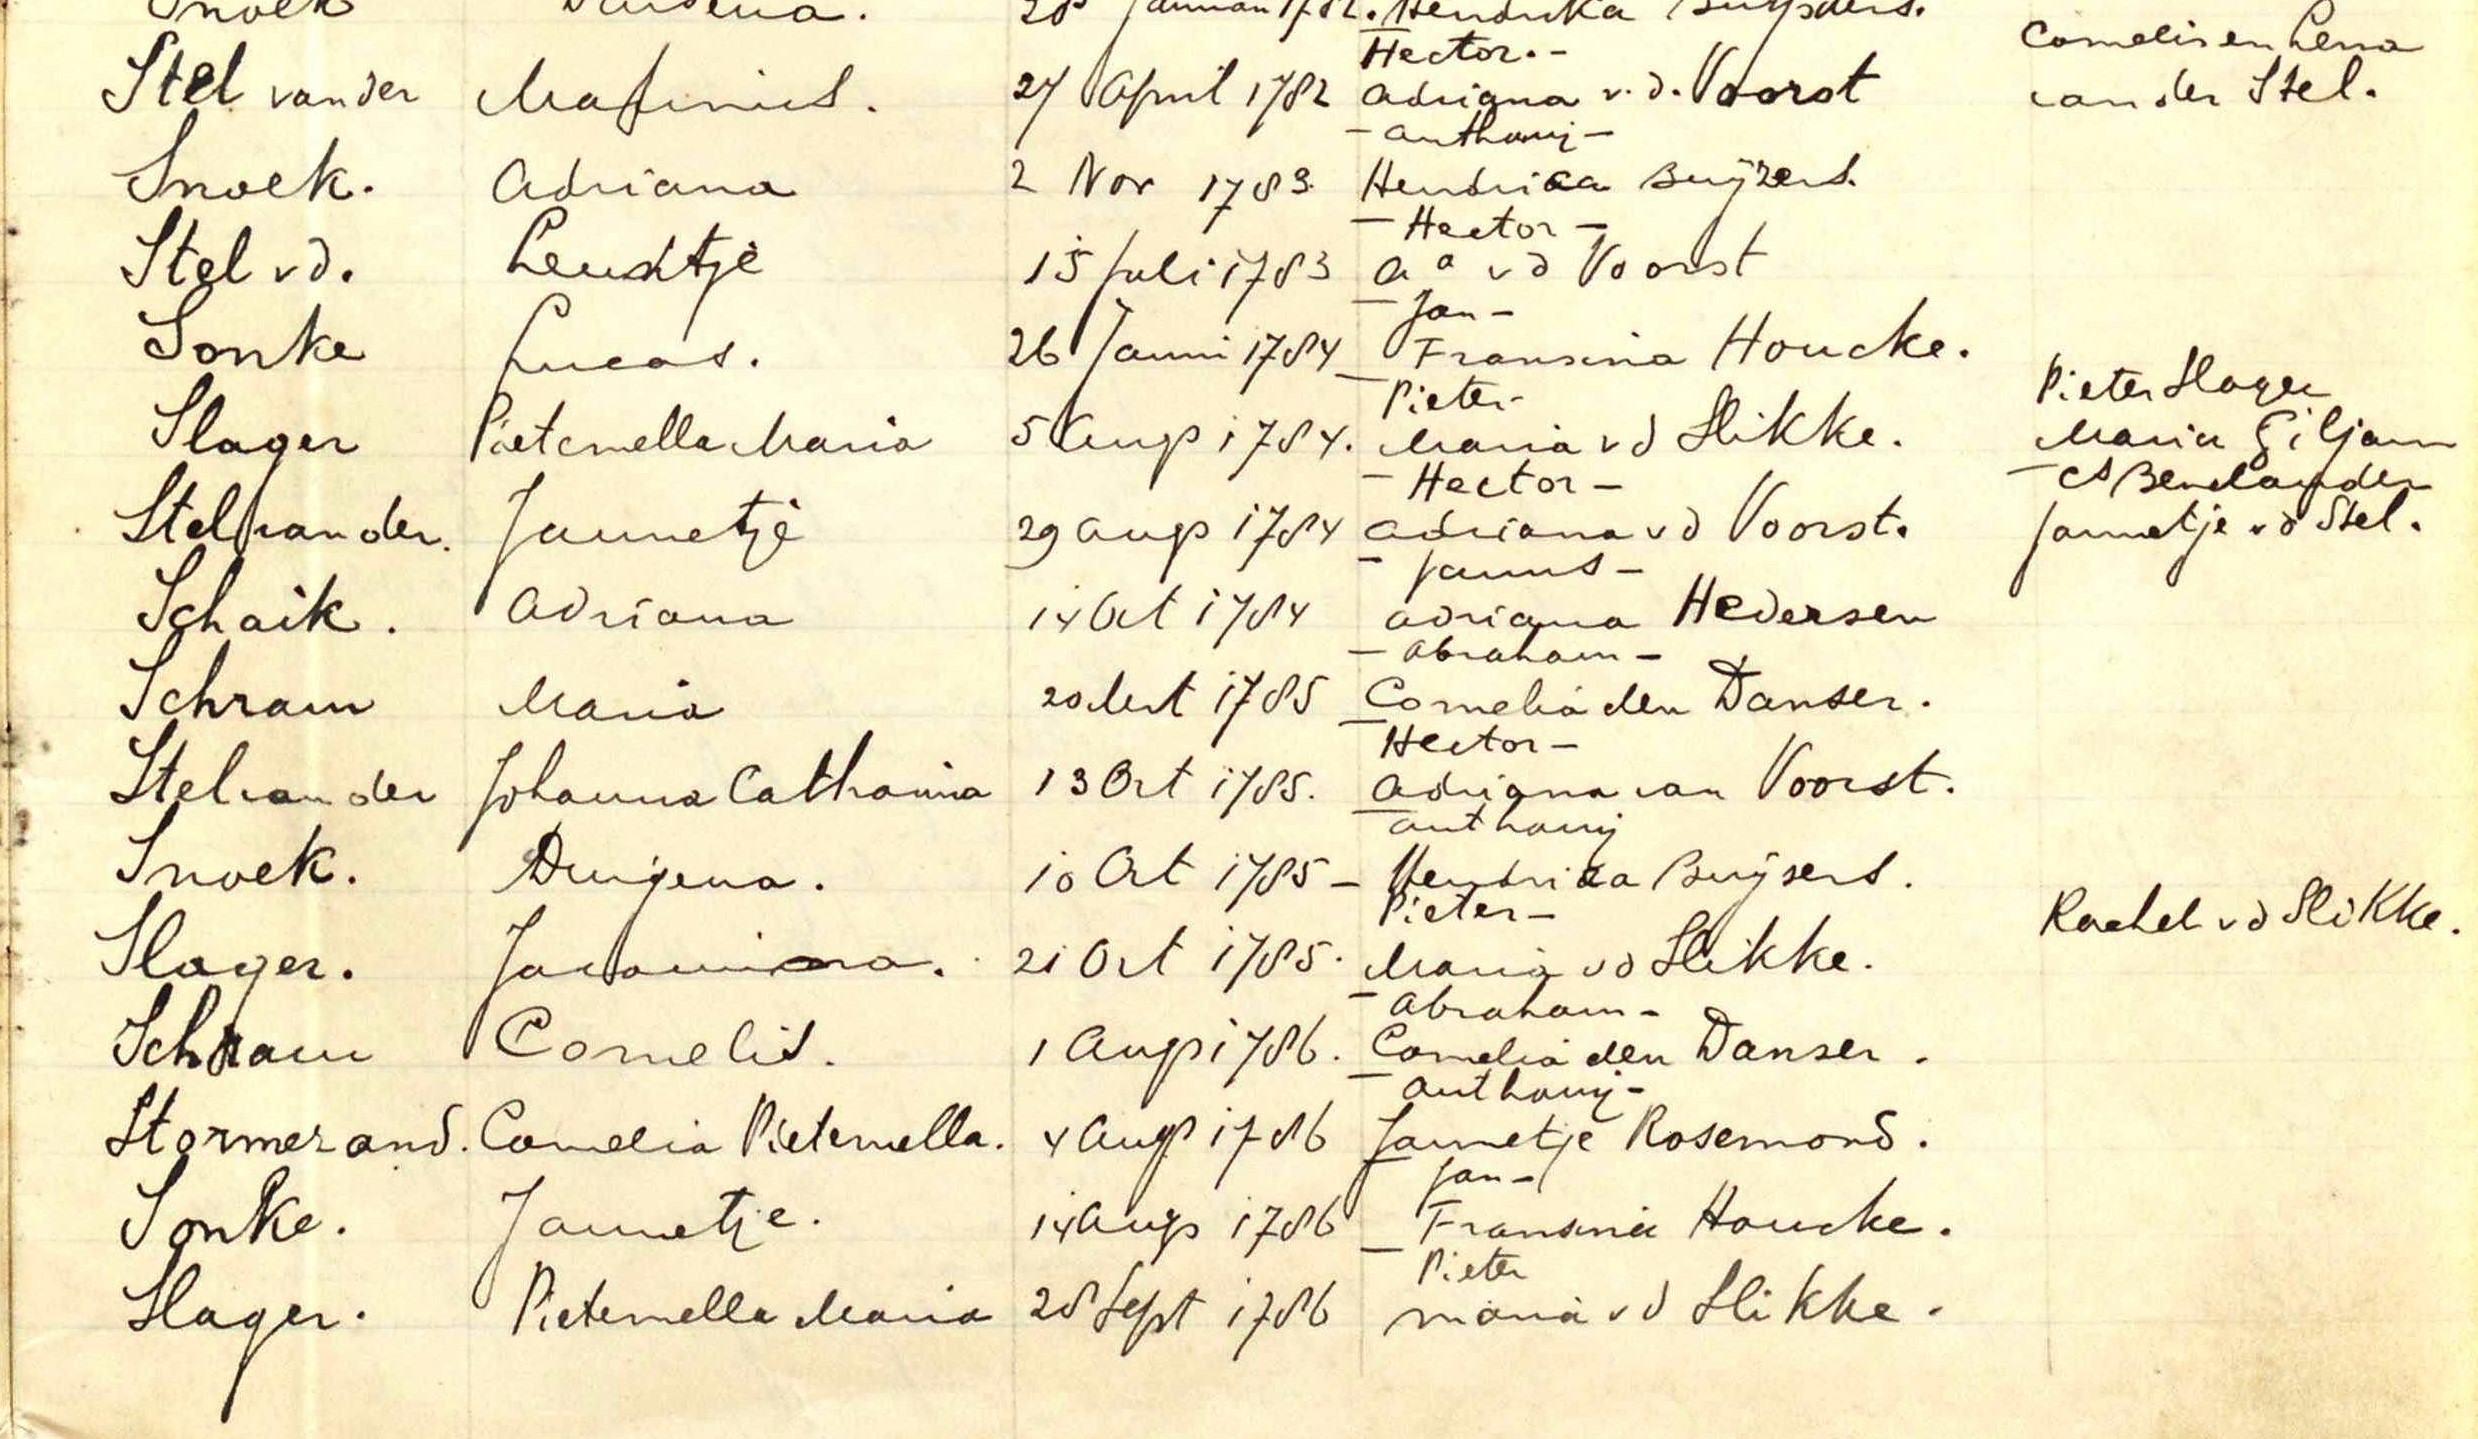 Snoek 20 Januari 1782. Hendrika
Hector.- Cornelis en Lena
Stel van der Marinus. 27 April 1782 Adriana v.d. Voorst van der Stel.
- Anthonij -
Snoek. Adriana 2 Nov 1783 Hendrica Buijzers.
- Hector -
Stel vd. Leuntje 15 Juli 1783 Aa vd Voorst
- Jan -
Sonke Lucas. 26 Janni 1784 Fransina Houcke.
- Pieter - Pieter Slager
Slager Pieternella Maria 5 Augs 1784. Maria vd Slikke. Maria Giljam
- Hector -
Stel van der. Jannetje 29 Augs 1784 Adriana vd Voorst. Jannetje vd Stel.
- Jannis -
Schaik. Adriana 14 Oct 1784 Adriana Hedersen
- Abraham -
Schram Maria 20 Mrt 1785 Cornelia den Danser.
- Hector -
Stel van der Johanna Catharina 13 Oct 1785. Adriana van Voorst.
- Anthonij
Snoek. 10 Oct 1785 - Hendrika Buijsers.
Pieter - Rachel vd Slikke.
Slager. Jacomina. 21 Oct 1785. Maria vd Slikke.
- Abraham -
Schram Cornelis. 1 Augs 1786. Cornelia den Danser.
- Anthonij -
Stormezand. Cornelia Pieternella. 4 Augs 1786 Jannetje Rosemond.
- Jan -
Sonke. Jannetje. 14 Augs 1786 Fransina Houcke.
- Pieter
Slager. Pieternella Maria 28 Sept 1786 Maria vd Slikke.